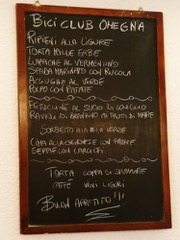 BICI CLUB ONEGNA
RIPIENI ALLA LIGURE
TORTA MILLE ERBE
LUMACHE AL VERMENTINO
MARINATO CON RUCOLA
ACCIUGHE AL VERDE
POLPO CON PATATE
FETUCCINE AL SUGO DI CONIGLIO
RAVIOLI DI BRANZINO AI FRUTTI DI MARE
SORBETTO ALLA MELA VERDE
CIMA ALLA GENOVESE CON PATATE
SEPPIE CON CARCIOFI
TORTA COPPA DI SPUMANTE
CAFFÈ VINI LIGURI
BUON APPETITO!!!